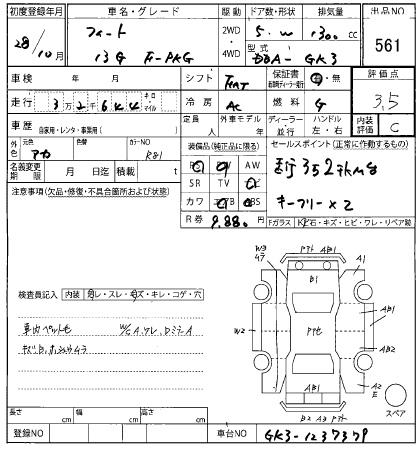 初度登録年月 車名・グレード 駆動 ドア数・形状 排気量 出品NO
28/10月 フィット 13G F-PKG 2WD 4WD 5・W 1300 cc 561
型式 DBA-GK3
車検 年 月 シフト FAT 保証書 有・無 評価点
走行 3万2千644 キロ マイル 冷房 AC 燃料 G 3.5
車歴 自家用・レンタ・事業用( ) 定員 人 外車モデル 年 ディーラー 並行 ハンドル 左・右 内装評価 C
外色 元色 アカ 色替 カラーNO R81
装備品(純正品に限る) セールスポイント(正常に動作するもの)
名義変更期限 月 日迄 積載 t
PS PW AW
SR TV ナビ
カワ エアB ABS
R券 9,880円
キーフリー×2
注意事項(欠品・修復・不具合箇所および状態)
Fガラス 飛石・キズ・ヒビ・ワレ・リペア跡
検査員記入 内装 汚レ・スレ・キズ・キレ・コゲ・穴
W3 A1 AB1 B1 W2 AB1 AB2 A2 E AB1 B2 A3
スペア
長さ cm 幅 cm 高さ cm
登録NO 車台NO GK3-1237379